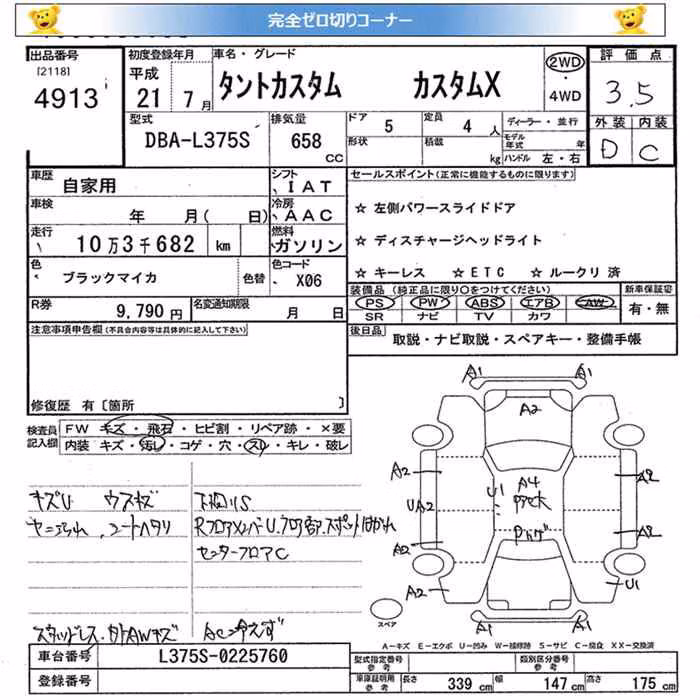 完全ゼロ切りコーナー
出品番号
[2118]
4913
初度登録年月
平成
21 7月
車名・グレード
タントカスタム カスタムX
2WD
・
4WD
評価点
3.5
外装 内装
D C
型式
DBA-L375S
排気量
658
CC
ドア
5
形状
定員
4 人
積載
kg
ディーラー・並行
モデル年式 年
ハンドル 左・右
車歴
自家用
シフト
IAT
車検
年 月( 日)
冷房
AAC
走行
10万3千682 km
燃料
ガソリン
色
ブラックマイカ
色替
色コード
X06
R券
9,790円
名変通知期限
月 日
セールスポイント(正常に機能するものに限ります)
☆ 左側パワースライドドア
☆ ディスチャージヘッドライト
☆ キーレス ☆ ETC ☆ ルークリ 済
装備品 (純正品に限り○をつけてください)
PS PW ABS エアB AW
SR ナビ TV カワ
新車保証書
有・無
後日品
取説・ナビ取説・スペアキー・整備手帳
注意事項申告欄(不具合内容等は具体的に記入して下さい)
修復歴 有〔箇所 〕
検査員
記入欄
FW キズ・飛石・ヒビ割・リペア跡・×要
内装 キズ・汚れ・コゲ・穴・スレ・キレ・破レ
キズU ウスキズ
下回りS
RフロアメンバーU.フロア部.スポットはがれ
センターフロアC
スタッドレス.
AC冷えず
A1 A1
A2
A2 A4 A2
UA2 U1
A2 A2
A2 U1
A1 A1
スペア
A-キズ E-エクボ U-凹み W-補修跡 S-サビ C-腐食 XX-交換済
車台番号
L375S-0225760
登録番号
型式指定番号
参考
類別区分番号
参考
車庫証明用
参考
長さ 339 cm 幅 147 cm 高さ 175 cm